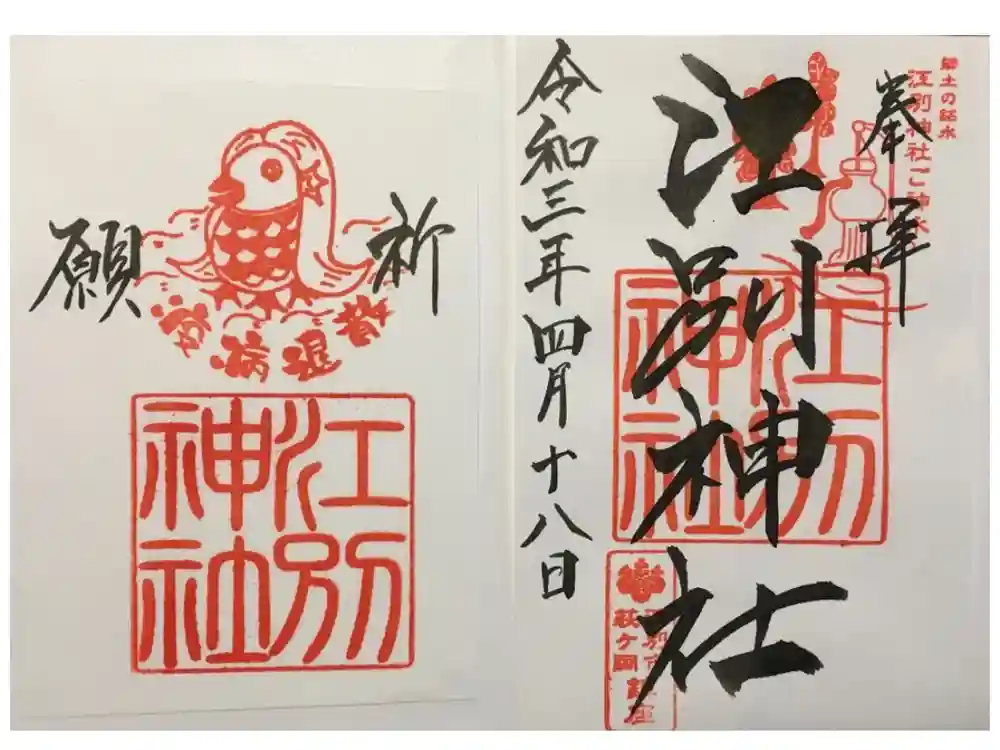 奉拝
郷土の銘水
江別神社ご神水
江別神社
江別
神社
江別市
萩ケ岡
鎮座
令和三年四月十八日
祈願
疫病退散
江別
神社